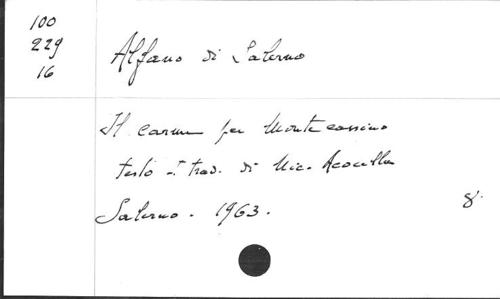 100
229
16
Alfano di Salerno
Il carme per Montecassino
testo e trad. di Nic. Acocella
Salerno. 1963.
8.